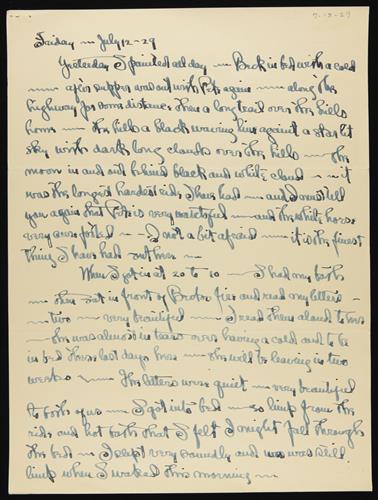 7-12-29
Friday — July 12-29
Yesterday I painted all day — Beck in bed with a cold
— after supper was out with Pete again — along the
highway for some distance then a long trail over the hills
home — the hills a black waving line against a star lit
sky with dark long clouds over the hills — the
moon in and out behind black and white cloud — it
was the longest hardest ride I have had — and I must tell
you again that Pete is very and the white horse
very sure footed — I not a bit afraid — it is the finest
thing I have had out here —
When I got in at 20 to 10 — I had my bath
— then sat in front of fire and read my letters —
— two — very beautiful — I read them aloud to
— she was almost in tears over having a cold and to be
in bed these last days here — she will be leaving in two
weeks — The letters were quiet — very beautiful
to both of us — I got into bed — so limp from the
ride and hot bath that I felt I might fall through
the bed — I slept very soundly and was still
limp when I waked this morning —